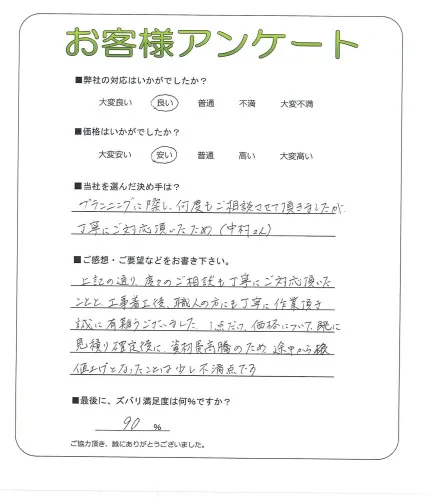 お客様アンケート
■弊社の対応はいかがでしたか?
大変良い 良い 普通 不満 大変不満
■価格はいかがでしたか?
大変安い 安い 普通 高い 大変高い
■当社を選んだ決め手は?
プランニングに際し、何度もご相談させて頂きましたが、
丁寧にご対応頂いたため(中村さん)
■ご感想・ご要望などをお書き下さい。
上記の通り、度々のご相談も丁寧にご対応頂いた
ことと、工事着工後、職人の方にも丁寧に作業頂き
誠に有難うございました。1点だけ、価格について、既に
見積り確定後に、資材費高騰のため途中から
値上げとなったことは少し不満点です
■最後に、ズバリ満足度は何%ですか?
90 %
ご協力頂き、誠にありがとうございました。